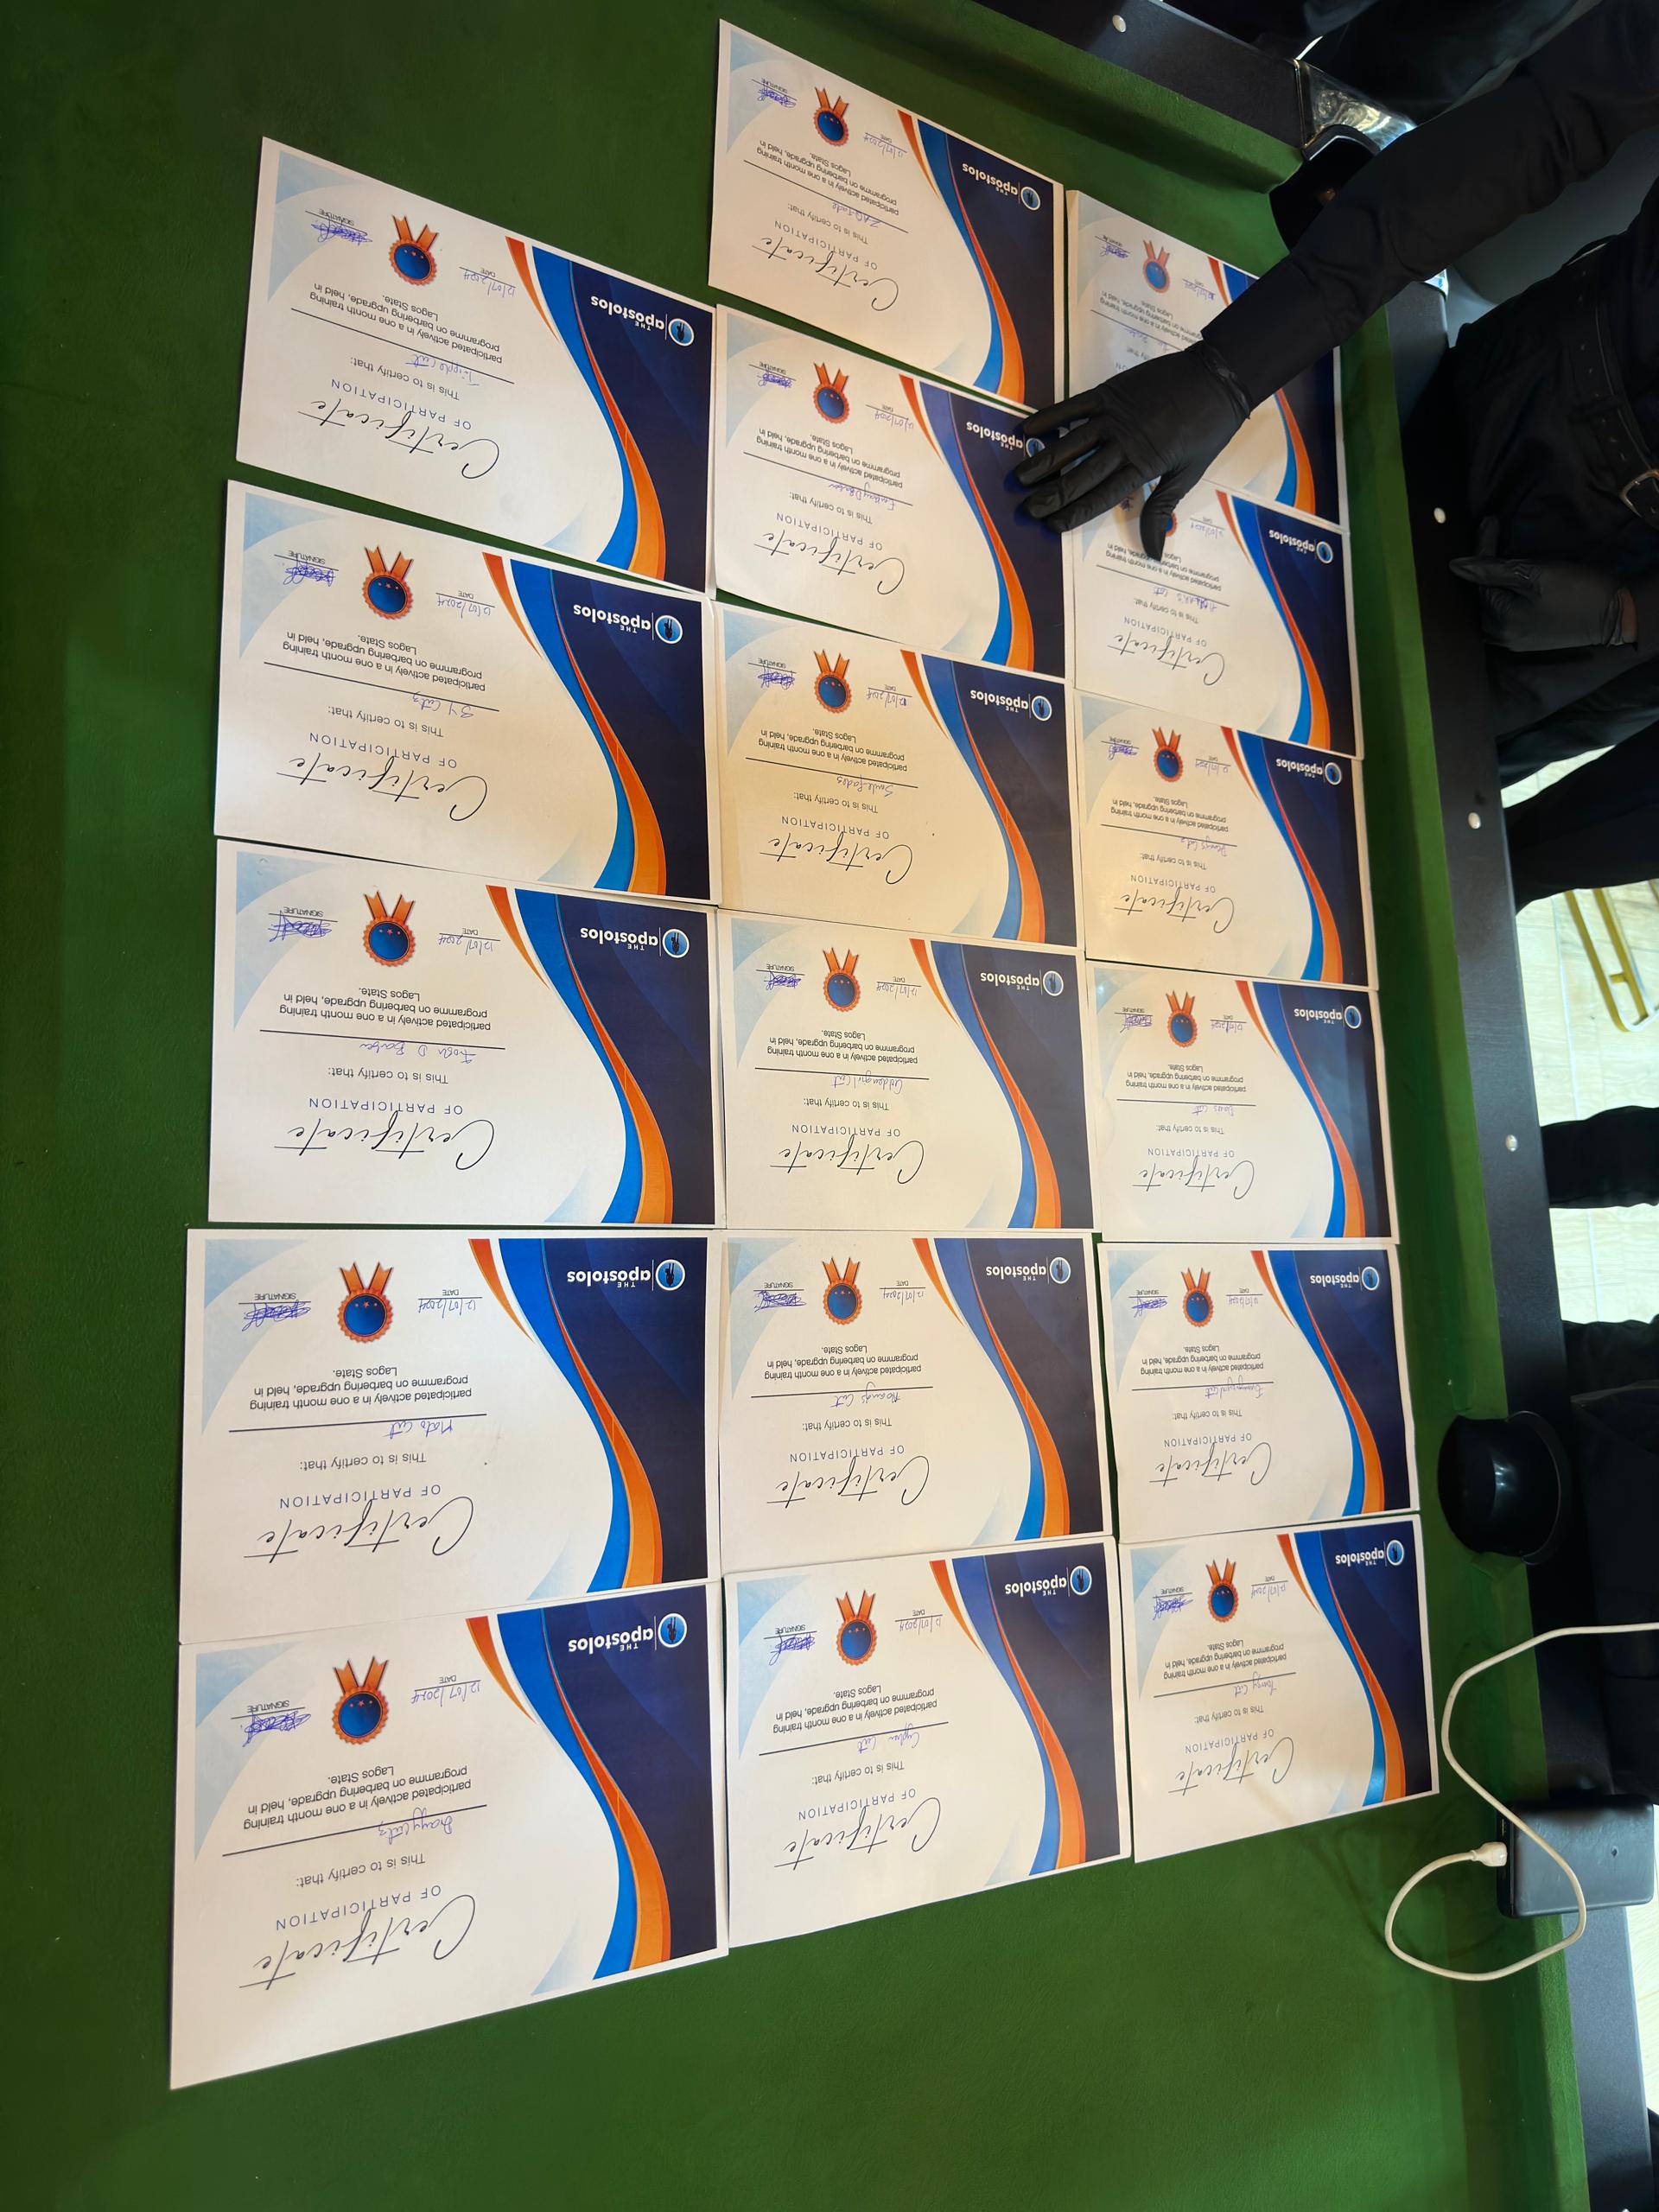 Certificate
OF PARTICIPATION
This is to certify that:
Cut
participated actively in a one month training
programme on barbering upgrade, held in
Lagos State.
12/07/2024
DATE
SIGNATURE
THE
apostolos
Certificate
OF PARTICIPATION
This is to certify that:
Cut
participated actively in a one month training
programme on barbering upgrade, held in
Lagos State.
12/07/2024
DATE
SIGNATURE
THE
apostolos
Certificate
OF PARTICIPATION
This is to certify that:
Brayy Cutz
participated actively in a one month training
programme on barbering upgrade, held in
Lagos State.
12/07/2024
DATE
SIGNATURE
THE
apostolos
Certificate
OF PARTICIPATION
This is to certify that:
participated actively in a one month training
programme on barbering upgrade, held in
Lagos State.
12/07/2024
DATE
SIGNATURE
THE
apostolos
Certificate
OF PARTICIPATION
This is to certify that:
Cut
participated actively in a one month training
programme on barbering upgrade, held in
Lagos State.
12/07/2024
DATE
SIGNATURE
THE
apostolos
Certificate
OF PARTICIPATION
This is to certify that:
Cut
participated actively in a one month training
programme on barbering upgrade, held in
Lagos State.
12/07/2024
DATE
SIGNATURE
THE
apostolos
Certificate
OF PARTICIPATION
This is to certify that:
Cut
participated actively in a one month training
programme on barbering upgrade, held in
Lagos State.
12/07/2024
DATE
SIGNATURE
THE
apostolos
Certificate
OF PARTICIPATION
This is to certify that:
Cut
participated actively in a one month training
programme on barbering upgrade, held in
Lagos State.
12/07/2024
DATE
SIGNATURE
THE
apostolos
Certificate
OF PARTICIPATION
This is to certify that:
D Barber
participated actively in a one month training
programme on barbering upgrade, held in
Lagos State.
12/07/2024
DATE
SIGNATURE
THE
apostolos
Certificate
OF PARTICIPATION
This is to certify that:
participated actively in a one month training
programme on barbering upgrade, held in
Lagos State.
12/07/2024
DATE
SIGNATURE
THE
apostolos
Certificate
OF PARTICIPATION
This is to certify that:
fades
participated actively in a one month training
programme on barbering upgrade, held in
Lagos State.
12/07/2024
DATE
SIGNATURE
THE
apostolos
Certificate
OF PARTICIPATION
This is to certify that:
SY Cutz
participated actively in a one month training
programme on barbering upgrade, held in
Lagos State.
12/07/2024
DATE
SIGNATURE
THE
apostolos
Certificate
OF PARTICIPATION
This is to certify that:
Cut
participated actively in a one month training
programme on barbering upgrade, held in
Lagos
12/07/2024
DATE
THE
apostolos
Certificate
OF PARTICIPATION
This is to certify that:
participated actively in a one month training
programme on barbering upgrade, held in
Lagos State.
12/07/2024
DATE
SIGNATURE
apostolos
Certificate
OF PARTICIPATION
This is to certify that:
Tripple Cut
participated actively in a one month training
programme on barbering upgrade, held in
Lagos State.
12/07/2024
DATE
SIGNATURE
THE
apostolos
month training
upgrade, held in
Certificate
OF PARTICIPATION
This is to certify that:
participated actively in a one month training
programme on barbering upgrade, held in
Lagos State.
12/07/2024
DATE
SIGNATURE
THE
apostolos